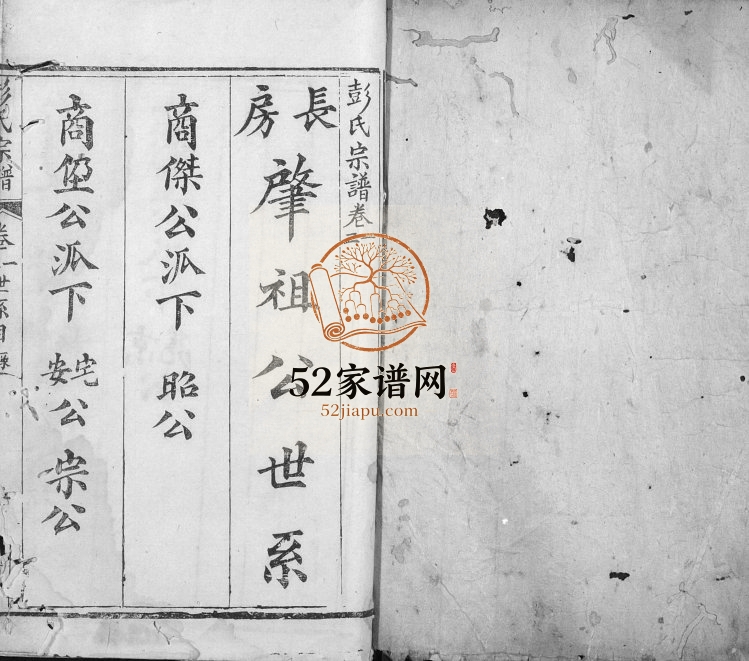 彭氏宗譜卷
長房
肇祖公世系
商傑公派下 昭公
商垕公派下 宅安公 宗公
彭氏宗譜 卷一 世系目錄
52家谱网
52jiapu.com